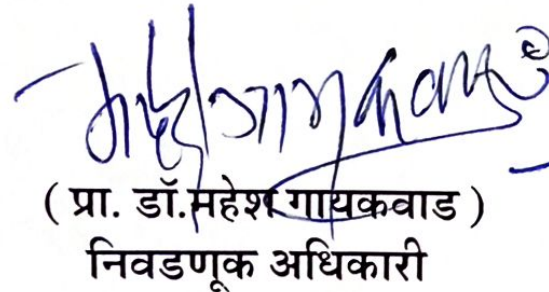 ( प्रा. डॉ.महेश गायकवाड )
निवडणूक अधिकारी